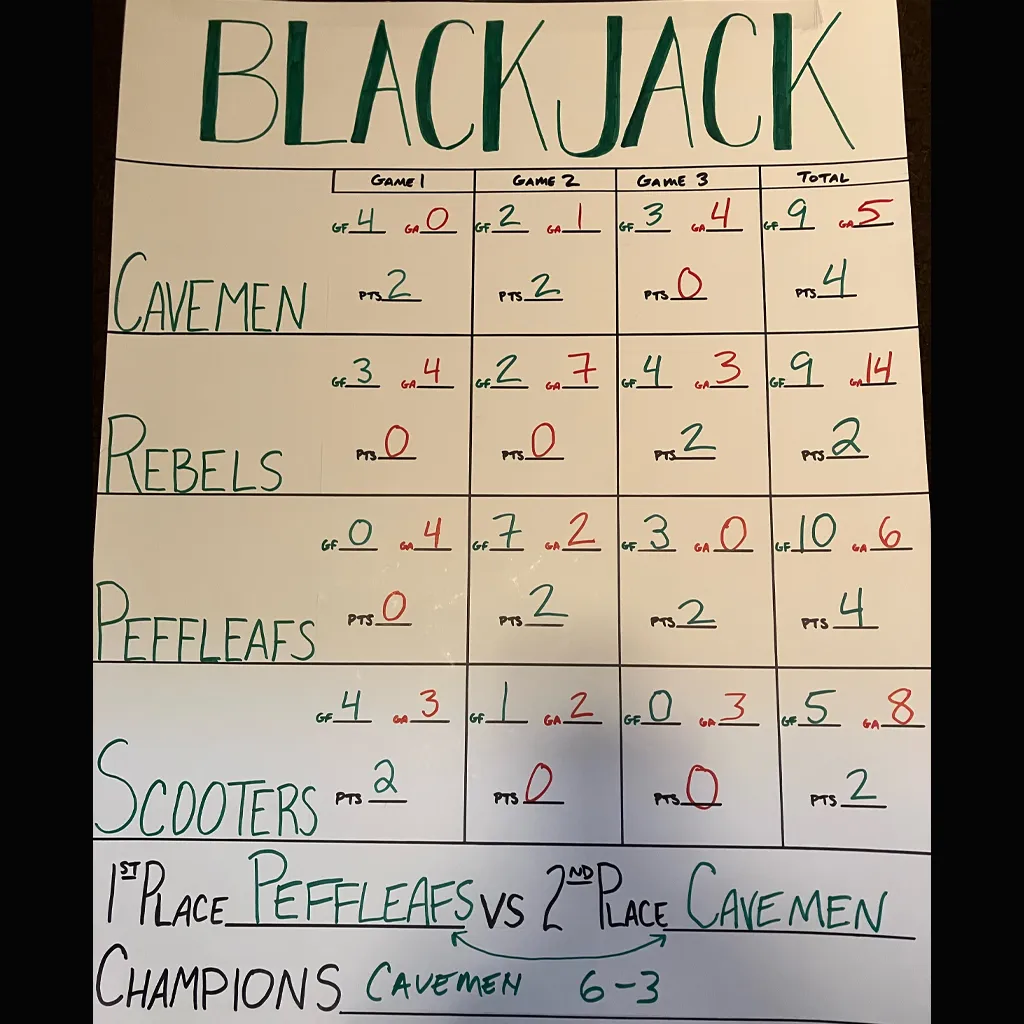 BLACKJACK
GAME 1 GAME 2 GAME 3 TOTAL
GF 4 GA 0 GF 2 GA 1 GF 3 GA 4 GF 9 GA 5
CAVEMEN PTS 2 PTS 2 PTS 0 PTS 4
GF 3 GA 4 GF 2 GA 7 GF 4 GA 3 GF 9 GA 14
REBELS PTS 0 PTS 0 PTS 2 PTS 2
GF 0 GA 4 GF 7 GA 2 GF 3 GA 0 GF 10 GA 6
PEFFLEAFS PTS 0 PTS 2 PTS 2 PTS 4
GF 4 GA 3 GF 1 GA 2 GF 0 GA 3 GF 5 GA 8
SCOOTERS PTS 2 PTS 0 PTS 0 PTS 2
1ST PLACE PEFFLEAFS VS 2ND PLACE CAVEMEN
CHAMPIONS CAVEMEN 6-3